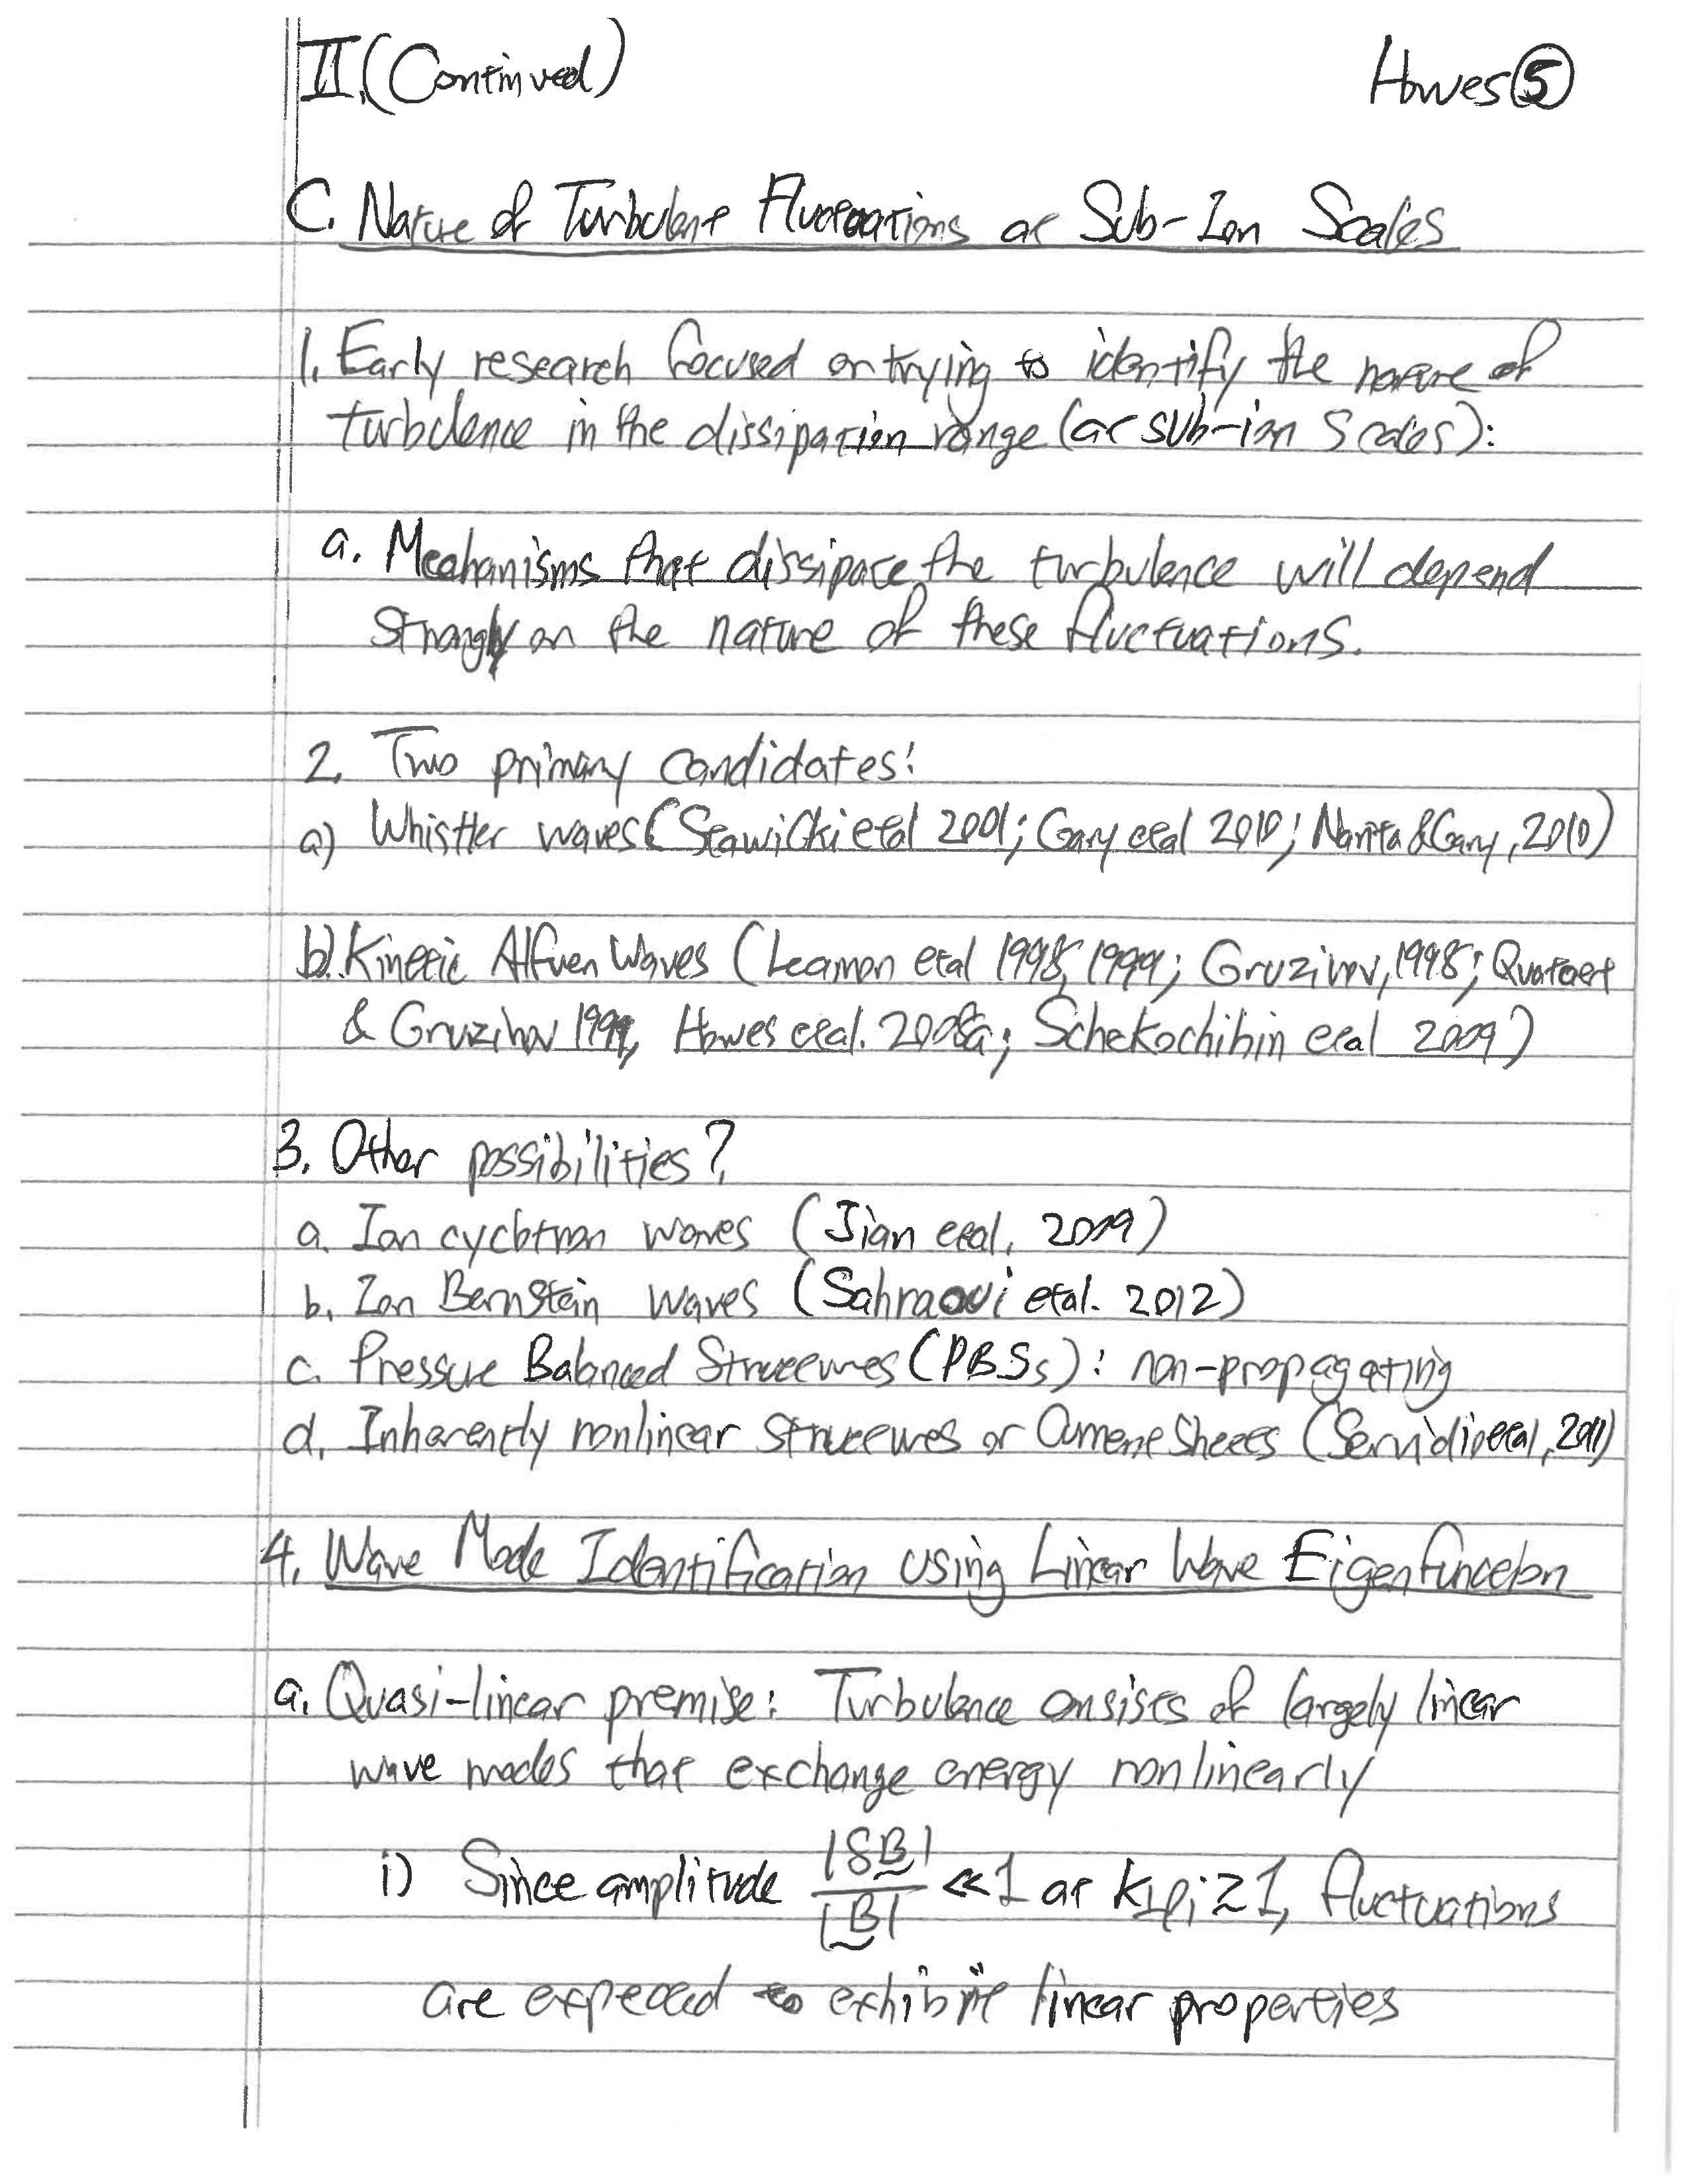 II. (Continued)
Howes 5
C. Nature of Turbulent Fluctuations at Sub-Ion Scales
1. Early research focused on trying to identify the nature of
turbulence in the dissipation range (at sub-ion scales):
a. Mechanisms that dissipate the turbulence will depend
strongly on the nature of these fluctuations.
2. Two primary candidates:
a) Whistler waves (Stawicki et al 2001; Gary et al 2010; Narita & Gary, 2010)
b) Kinetic Alfven Waves (Leamon et al 1998, 1999; Gruzinov, 1998; Quataert
& Gruzinov 1999, Howes et al. 2008a; Schekochihin et al 2009)
3. Other possibilities?
a. Ion cyclotron waves (Jian et al, 2009)
b. Ion Bernstein waves (Sahraoui et al. 2012)
c. Pressure Balanced Structures (PBSs): non-propagating
d. Inherently nonlinear structures or Current Sheets (Servidio et al, 2011)
4. Wave Mode Identification using Linear Wave Eigenfunction
a. Quasi-linear premise: Turbulence consists of largely linear
wave modes that exchange energy nonlinearly
i) Since amplitude |δB|/|B| ≪ 1 at k⊥ρi ≥ 1, fluctuations
are expected to exhibit linear properties